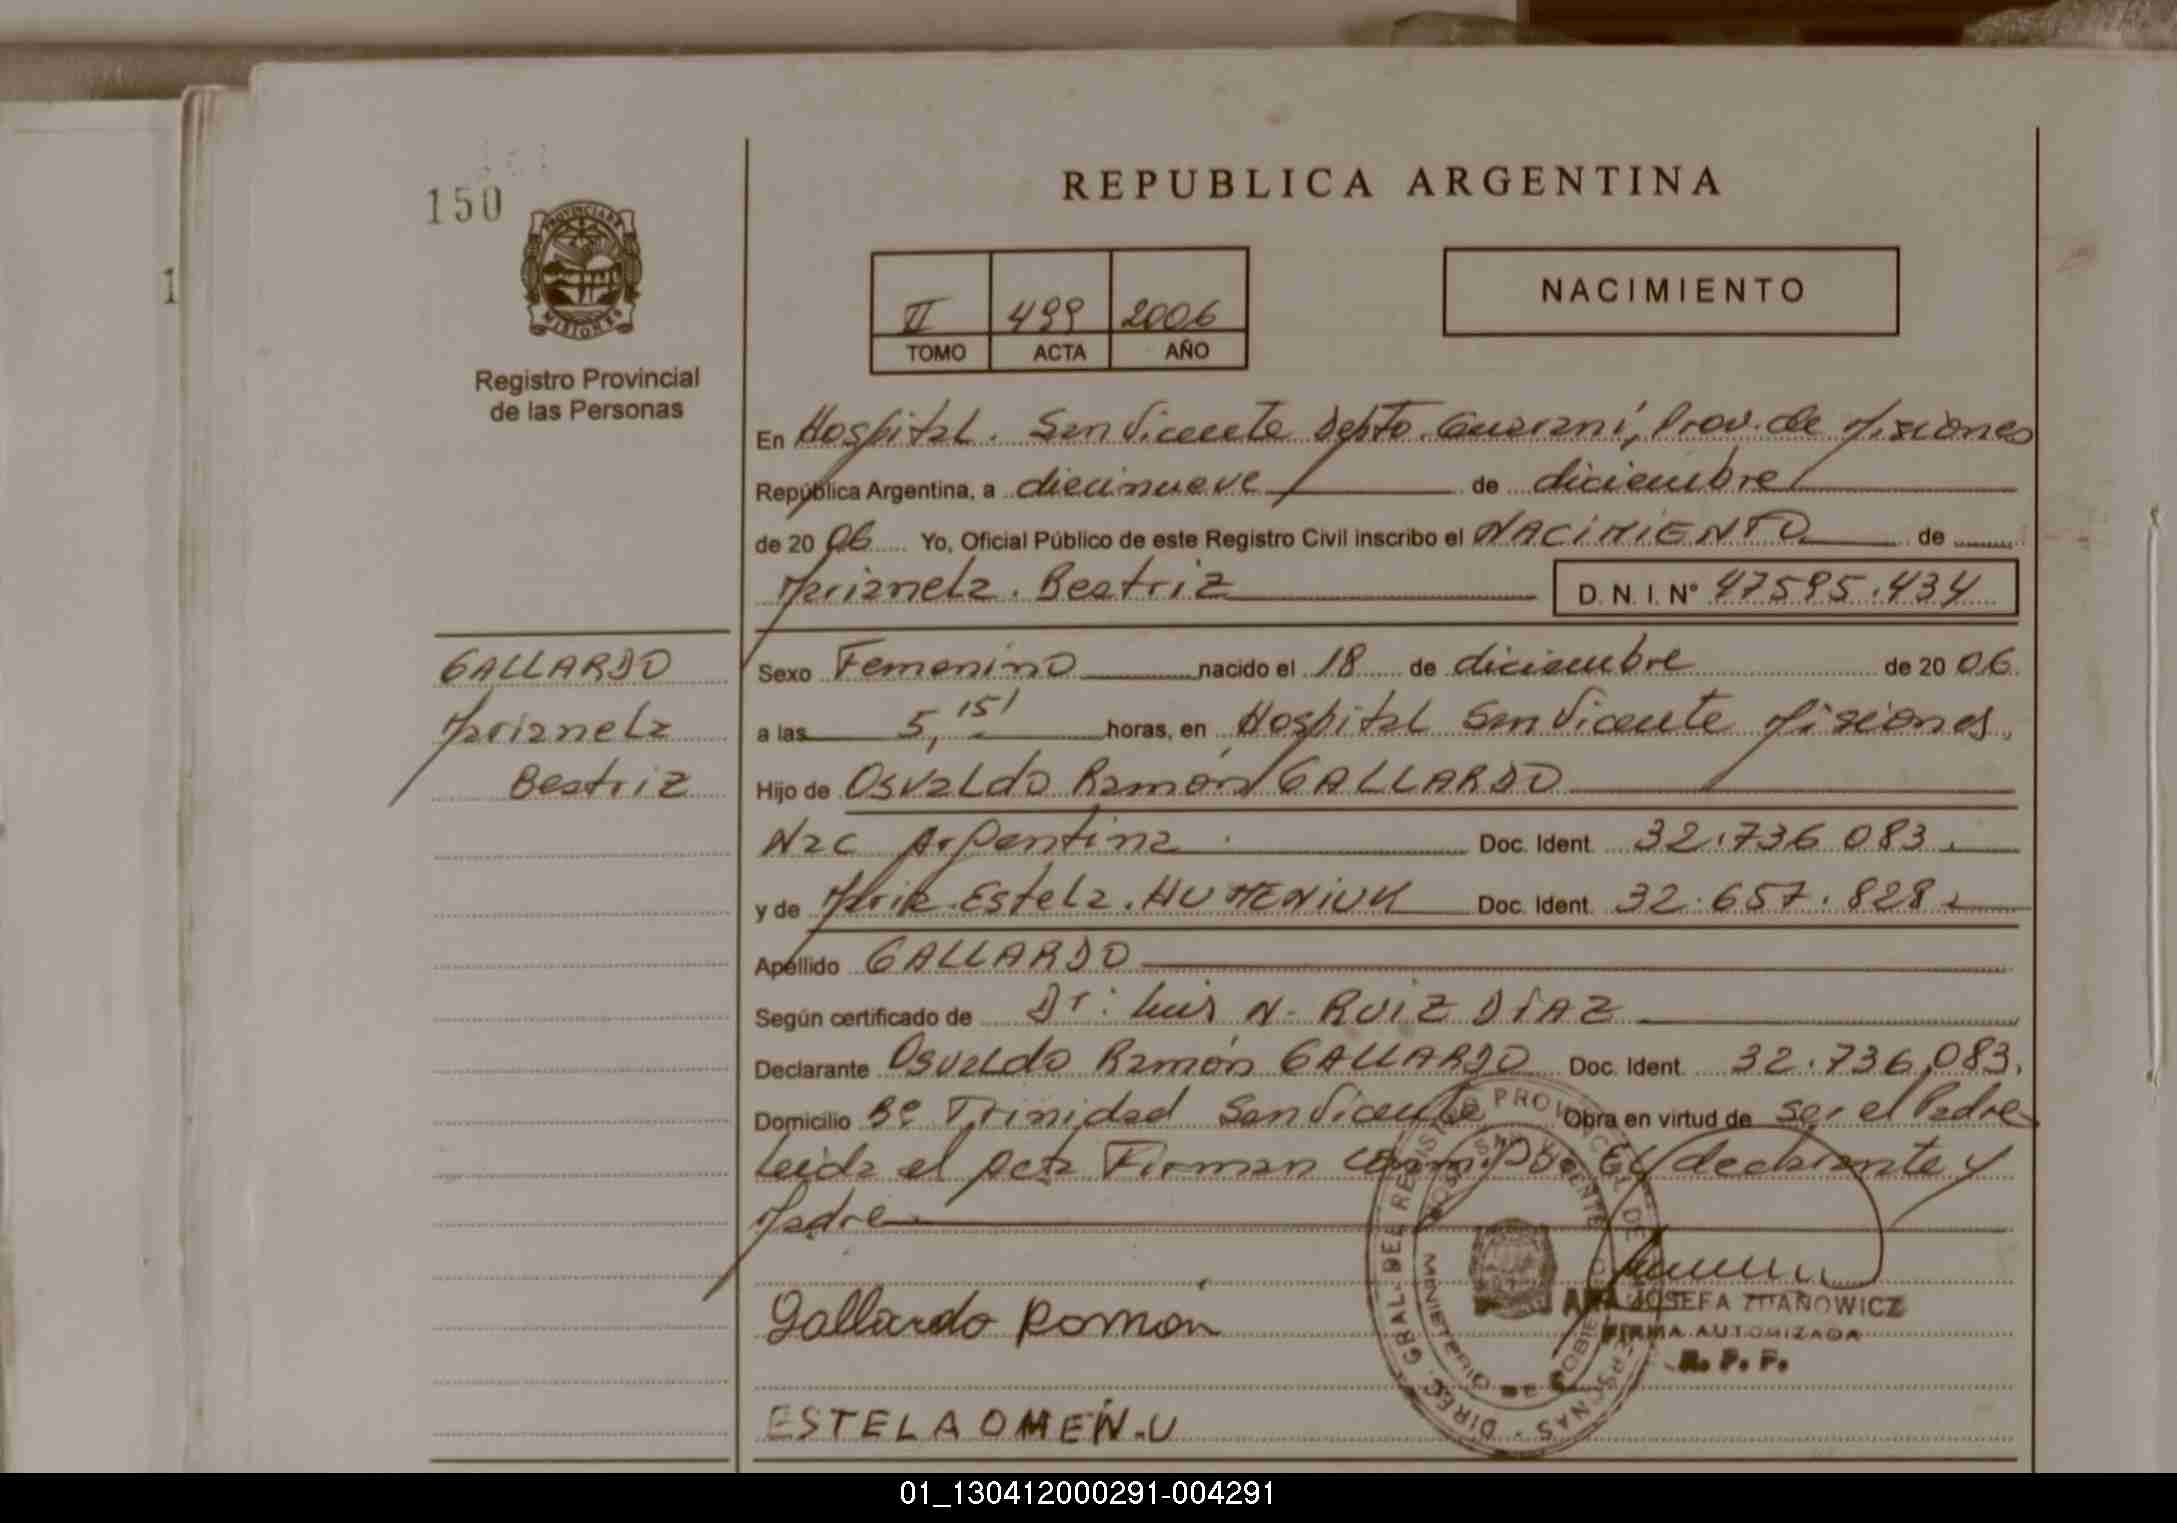 150
REPUBLICA ARGENTINA
PROVINCIA DE
MISIONES
Registro Provincial
de las Personas
II 499 2006
TOMO ACTA AÑO
NACIMIENTO
En Hospital. San Vicente Depto. Guaraní, Prov. de Misiones
República Argentina, a diecinueve de diciembre
de 2006 Yo, Oficial Público de este Registro Civil inscribo el NACIMIENTO de
Marianela. Beatriz D. N. I. N° 47595.434
GALLARDO
Marianela
Beatriz
Sexo Femenino nacido el 18 de diciembre de 2006.
a las 5,15' horas, en Hospital San Vicente Misiones,
Hijo de Osvaldo Ramón GALLARDO
Nac Argentina. Doc. Ident. 32.736.083.
y de María Estela. HUMENIUK Doc. Ident. 32.657.828.
Apellido GALLARDO
Según certificado de Dr: Luis N. RUIZ DIAZ
Declarante Osvaldo Ramón GALLARDO Doc. Ident. 32.736.083.
Domicilio Bº Trinidad San Vicente Obra en virtud de ser el Padre
Leida el acta Firman conmigo El declarante y
Madre
Gallardo Ramón
ESTELA OMEÑ.U
DIREC. GRAL. DEL REGISTRO PROVINCIAL DE
MINISTERIO DE GOBIERNO
ANA JOSEFA
FIRMA AUTORIZADA
R. P. P.
01_130412000291-004291